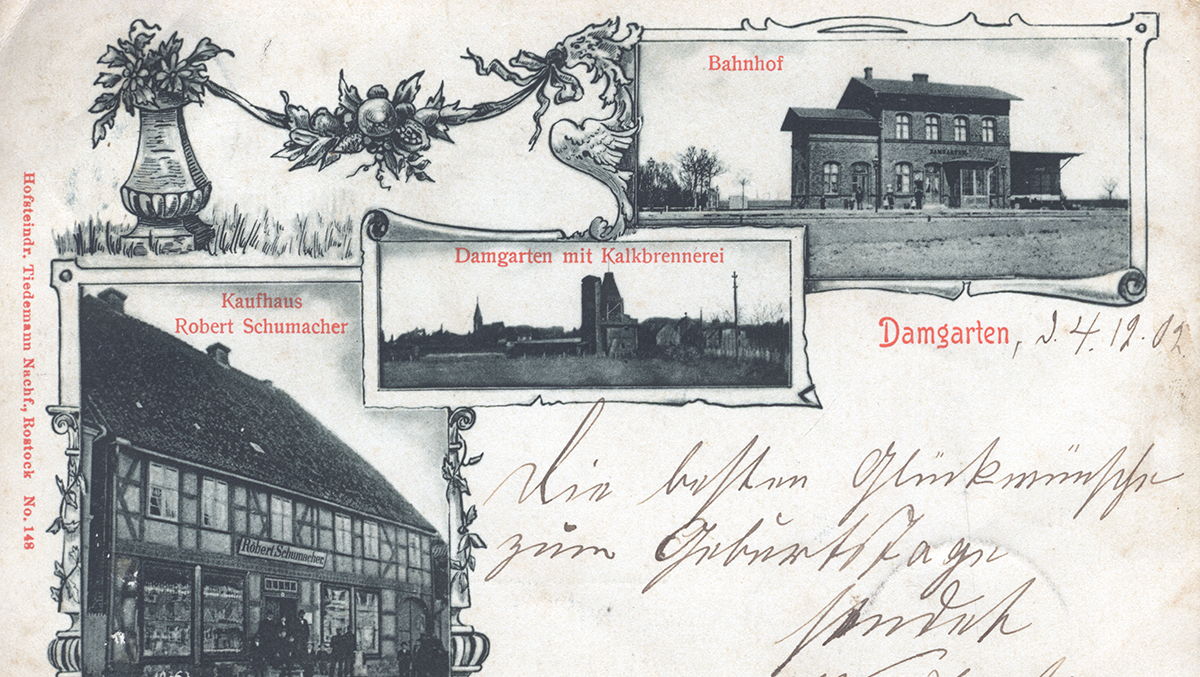 Bahnhof
DAMGARTEN.
Damgarten mit Kalkbrennerei
Kaufhaus
Robert Schumacher
Robert Schumacher
Damgarten, d. 4.12.02
Die besten Glückwünsche
zum Geburtstage
sendet
Hofsteindr. Tiedemann Nachf., Rostock No. 148